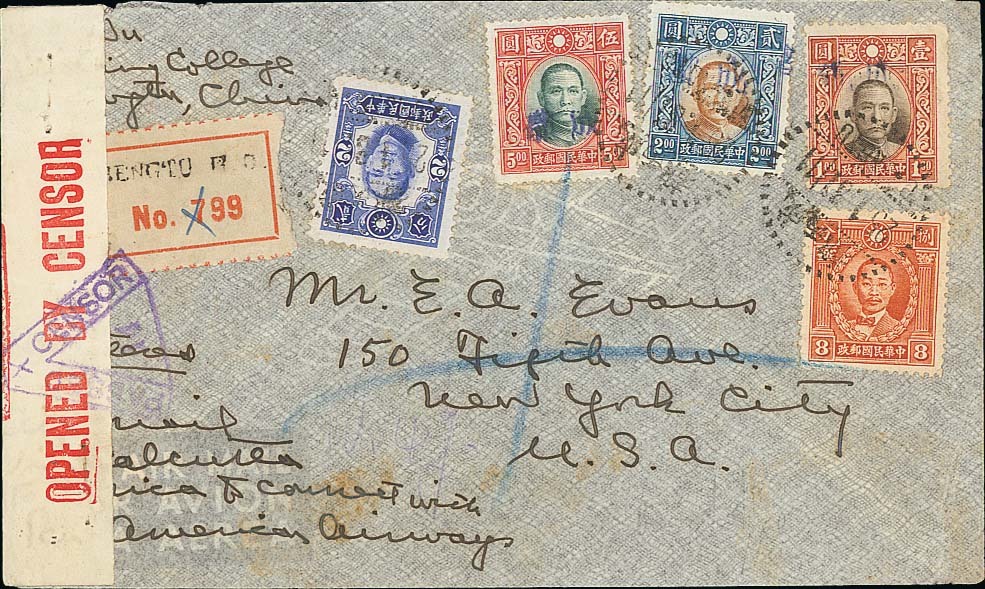 College
China
OPENED BY CENSOR
BENGTU R.O.
No. 799
CENSOR
2
貳
分
中華民國郵政
伍
圓
5.00
5.00
中華民國郵政
貳
圓
2.00
2.00
中華民國郵政
壹
圓
1.00
1.00
中華民國郵政
捌
分
8
8
中華民國郵政
Mr. E. A. Evans
150 Fifth Ave.
New York City
U. S. A.
mail
alcutta
rica to connect with
American Airways
AVION